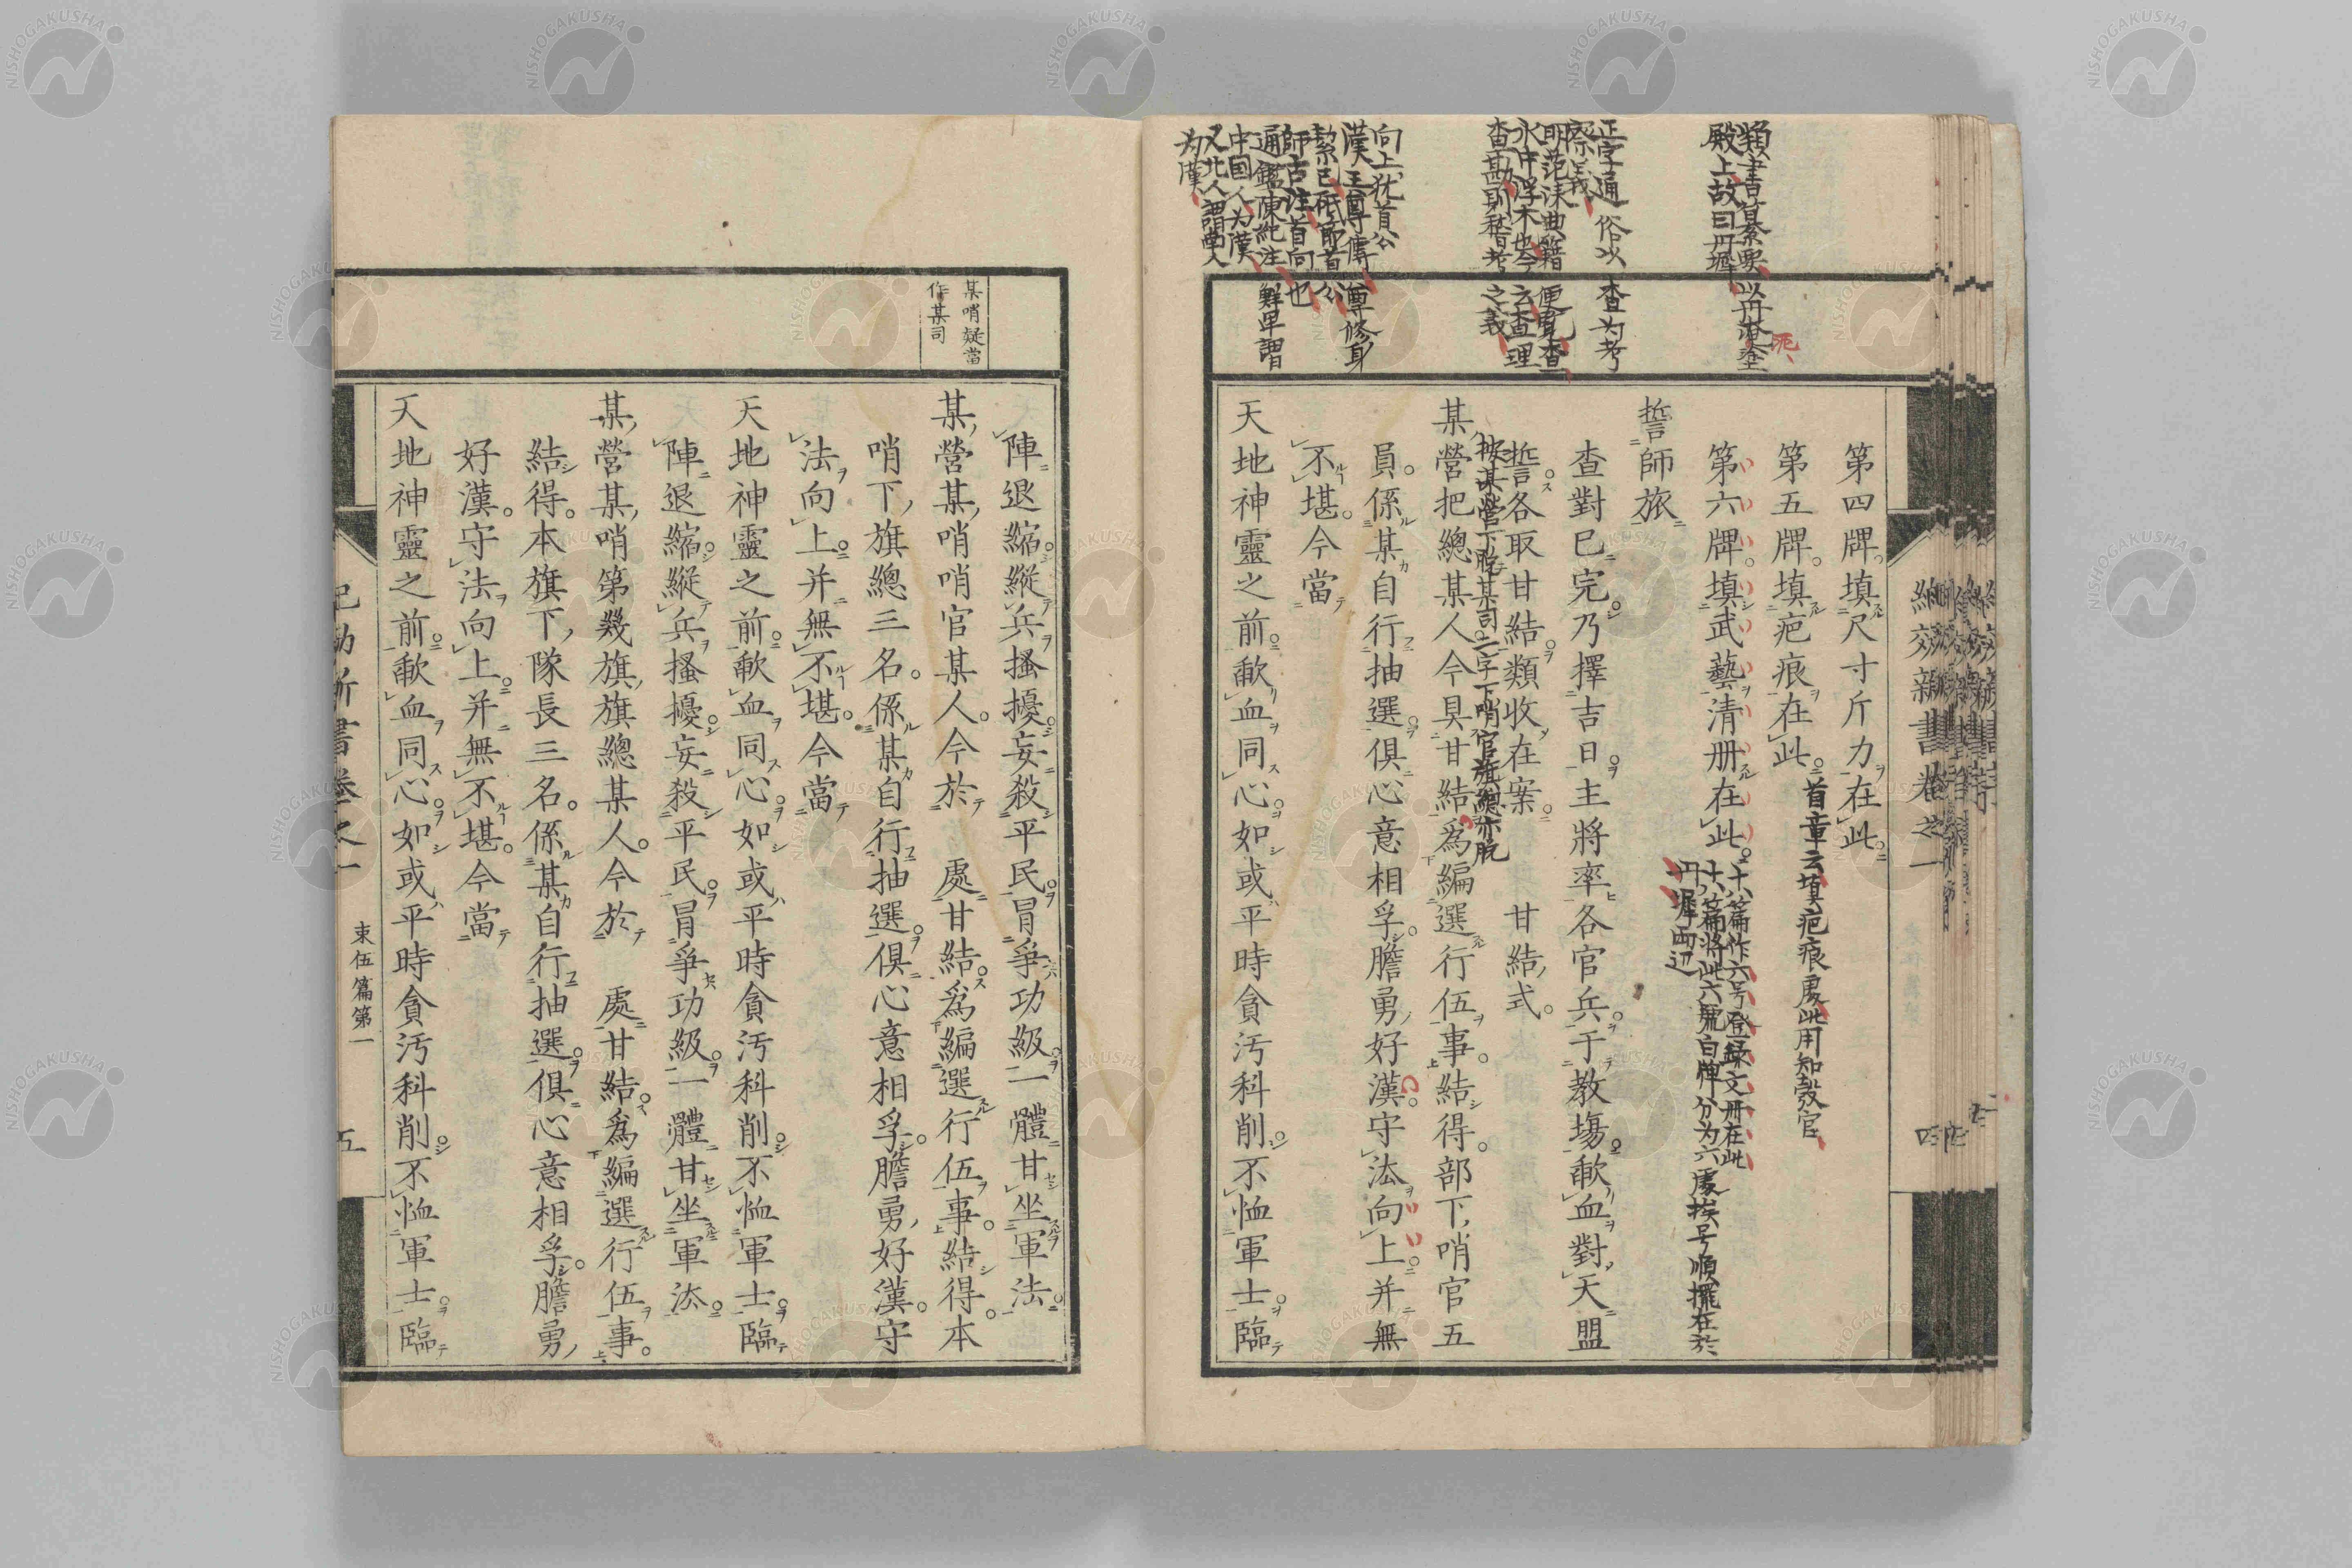 第四牌填尺寸斤力在此
第五牌填疤痕在此
首章云填疤痕處此用知殼官
第六牌填武藝清册在此
十八篇作六号登録文册在此
十六篇將此六號白牌分为六處挨号順擺在於
丹墀両辺
誓師旅
查對已完乃擇吉日主將率各官兵于教場歃血對天盟
誓各取甘結類收在案　甘結式
按某營下脫某司二字下哨官旗總亦脫
某營把總某人今具甘結爲編選行伍事結得部下哨官五
員係某自行抽選俱心意相孚膽勇好漢守法向上并無
不堪今當
天地神靈之前歃血同心如或平時貪汚科削不恤軍士臨
類書纂要以丹漆塗
泥
殿上故曰丹墀
正字通俗以查为考
察義
向上犹首公
漢王尊傳尊修身
絜己砥節首公
師古注首向也
通鑑陳紀注鮮卑謂
中国人为漢
为漢
紀效新書卷之一
四
陣退縮縱兵搔擾妄殺平民冒爭功級一體甘坐軍法
某營某哨哨官某人今於　處甘結爲編選行伍事結得本
哨下旗總三名係某自行抽選俱心意相孚膽勇好漢守
法向上并無不堪今當
天地神靈之前歃血同心如或平時貪汚科削不恤軍士臨
陣退縮縱兵搔擾妄殺平民冒爭功級一體甘坐軍法
某營某哨第幾旗旗總某人今於　處甘結爲編選行伍事
結得本旗下隊長三名係某自行抽選俱心意相孚膽勇
好漢守法向上并無不堪今當
天地神靈之前歃血同心如或平時貪汚科削不恤軍士臨
某哨疑當
作某司
紀効新書卷之一
束伍篇第一
五
NISHOGAKUSHA